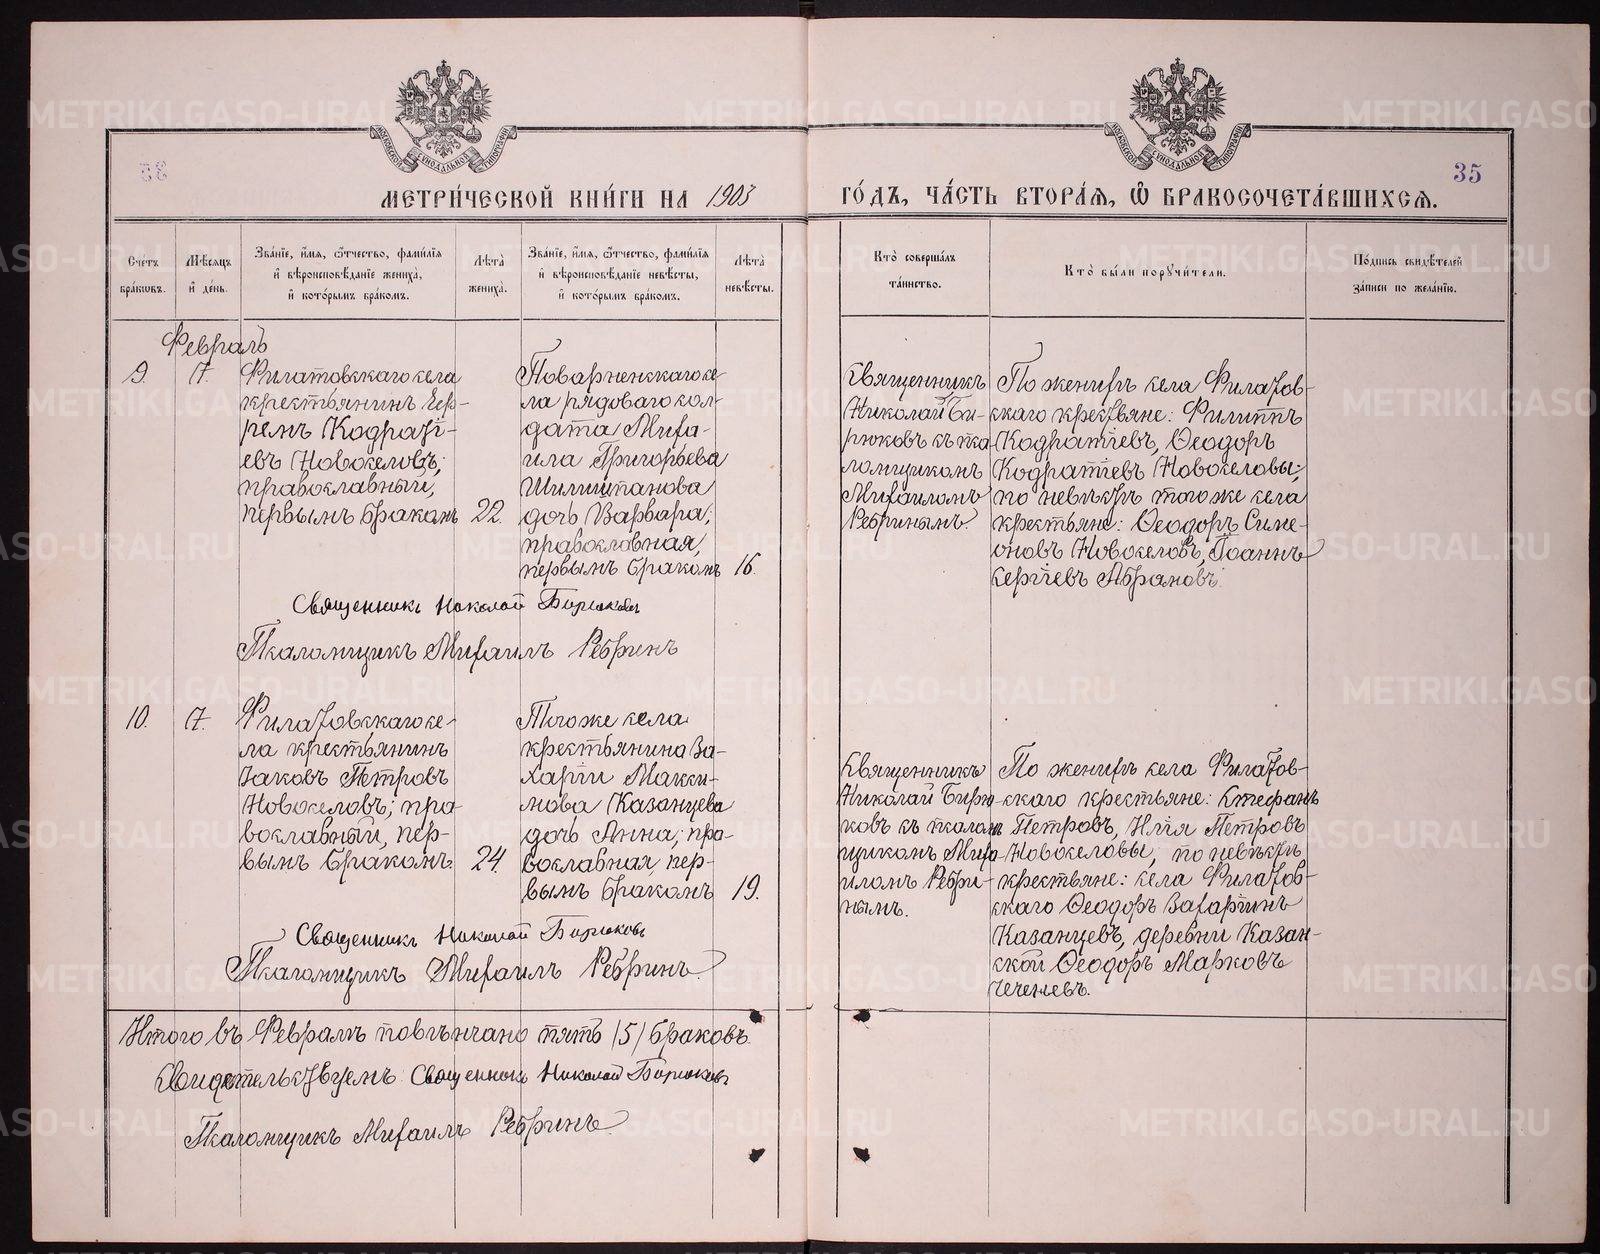 МЕТРИ́ЧЕСКОЙ КНИ́ГИ НА 1903 ГО́ДЪ, ЧА́СТЬ ВТОРА́Я, Ѽ БРАКОСОЧЕТА́ВШИХСЯ.
35
МОСКОВСКОЙ СѴНОДАЛЬНОЙ ТИПОГРАФІИ
МОСКОВСКОЙ СѴНОДАЛЬНОЙ ТИПОГРАФІИ
Сче́тъ
бра́ковъ.
Мѣ́сяцъ
и҆ де́нь.
Зва́нїе, и҆́мя, ѻ҆́тчество, фами́лїѧ
и҆ вѣроисповѣ́данїе жениха̀,
и҆ кото́рымъ бра́комъ.
Лѣ́та
жениха̀.
Зва́нїе, и҆́мя, ѻ҆́тчество, фами́лїѧ
и҆ вѣроисповѣ́данїе невѣ́сты,
и҆ кото́рымъ бра́комъ.
Лѣ́та
невѣ́сты.
Кто̀ соверша́лъ
та́инство.
Кто̀ бы́ли порꙋчи́тели.
По́дпись свидѣ́телей
за́писи по жела́нїю.
Февраль
9.
17.
Филатовскаго села
крестьянинъ Ефремъ
Кодратіевъ
Новоселовъ;
православный,
первымъ бракомъ
22.
Поварненскаго се-
ла рядоваго сол-
дата Миха-
ила Григорьева
Шилипанова
дочь Варвара;
православная,
первымъ бракомъ
16.
Священникъ
Николай Би-
рюковъ съ пса-
ломщикомъ
Михаиломъ
Ребринымъ.
По женихѣ села Филатов-
скаго крестьяне: Филиппъ
Кодратіевъ, Ѳеодоръ
Кодратіевъ Новоселовы;
по невѣстѣ того же села
крестьяне: Ѳеодоръ Симе-
оновъ Новоселовъ, Іоаннъ
Сергіевъ Абрамовъ.
Священникъ Николай Бирюковъ
Псаломщикъ Михаилъ Ребринъ
10.
17.
Филатовскаго се-
ла крестьянинъ
Іаковъ Петровъ
Новоселовъ; пра-
вославный, пер-
вымъ бракомъ.
24.
Того же села
крестьянина За-
харіи Макси-
мова Казанцева
дочь Анна; пра-
вославная, пер-
вымъ бракомъ
19.
Священникъ
Николай Бирю-
ковъ съ псалом-
щикомъ Миха-
иломъ Ребри-
нымъ.
По женихѣ села Филатов-
скаго крестьяне: Стефанъ
Петровъ, Илія Петровъ
Новоселовы, по невѣстѣ
крестьяне: села Филатов-
скаго Ѳеодоръ Захаринъ
Казанцевъ, деревни Казан-
ской Ѳеодоръ Марковъ
Чеченевъ.
Священникъ Николай Бирюковъ
Псаломщикъ Михаилъ Ребринъ
Итого въ Февралѣ повѣнчано пять /5/ браковъ.
Свидетельствуемъ: Священникъ Николай Бирюковъ
Псаломщикъ Михаилъ Ребринъ
METRIKI.GASO-URAL.RU